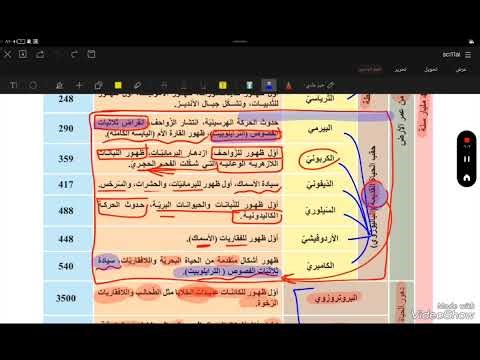 sci11al
عرض
تحرير
248
الترياسي
للثدييات، وتشكل جبال الأنديز.
290
البيرمي
حدوث الحركة الهرسينية، انتشار الزواحف، انقراض ثلاثيات
الفصوص (التريلوبيت)، ظهور القارة الأم (اليابسة الكاملة).
359
الكربوني
أول ظهور للزواحف، ازدهار البرمائيات، ظهور النباتات
اللازهرية الوعائية التي شكلت الفحم الحجري.
417
الديفوني
سيادة الأسماك، أول ظهور للبرمائيات، والحشرات، والسرخس.
488
السيلوري
أول ظهور للنباتات والحيوانات البرية، حدوث الحركة
الكاليدونية.
448
الأردوفيشي
أول ظهور للفقاريات (الأسماك).
540
الكامبري
ظهور أشكال متقدمة من الحياة البحرية واللافقاريات، سيادة
ثلاثيات الفصوص (الترايلوبيت).
حقب الحياة القديمة (الباليوزوي)
3500
البروتروزوي
أول ظهور للكائنات عديدات الخلايا مثل الطحالب واللافقاريات
الرخوة.
من عمر الأرض
مليار سنة
دهور الحياة
Made with
VideoShow